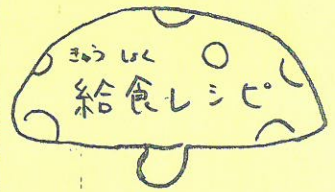 きゅうしょく
給食レシピ